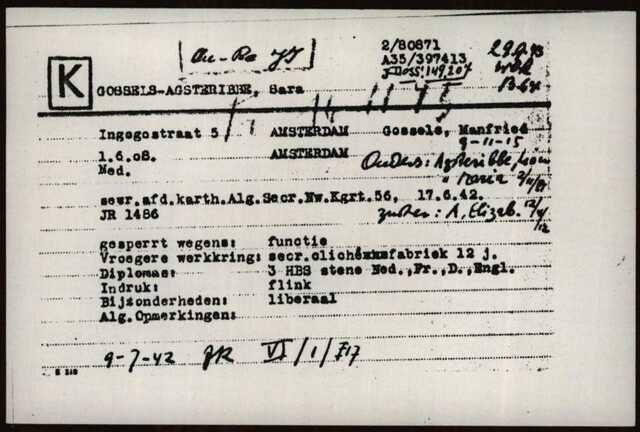 2/80871
A35/397413
K
GOSSELS-AGSTERIBBE, Sara
Ingogostraat 5 AMSTERDAM Gossels, Manfried
9-11-15
1.6.08. AMSTERDAM
Ned.
Ouders: Agsteribbe,
secr.afd.karth.Alg.Secr.Nw.Kgrt.56, 17.6.42.
JR 1486 zuster: A, Elizab.
gesperrt wegens: functie
Vroegere werkkring: secr.clichéfabriek 12 j.
Diplomas: 3 HBS steno Ned.,Fr.,D.,Engl.
Indruk: flink
Bijzonderheden: liberaal
Alg.Opmerkingen:
9-7-42 JR VI/1/